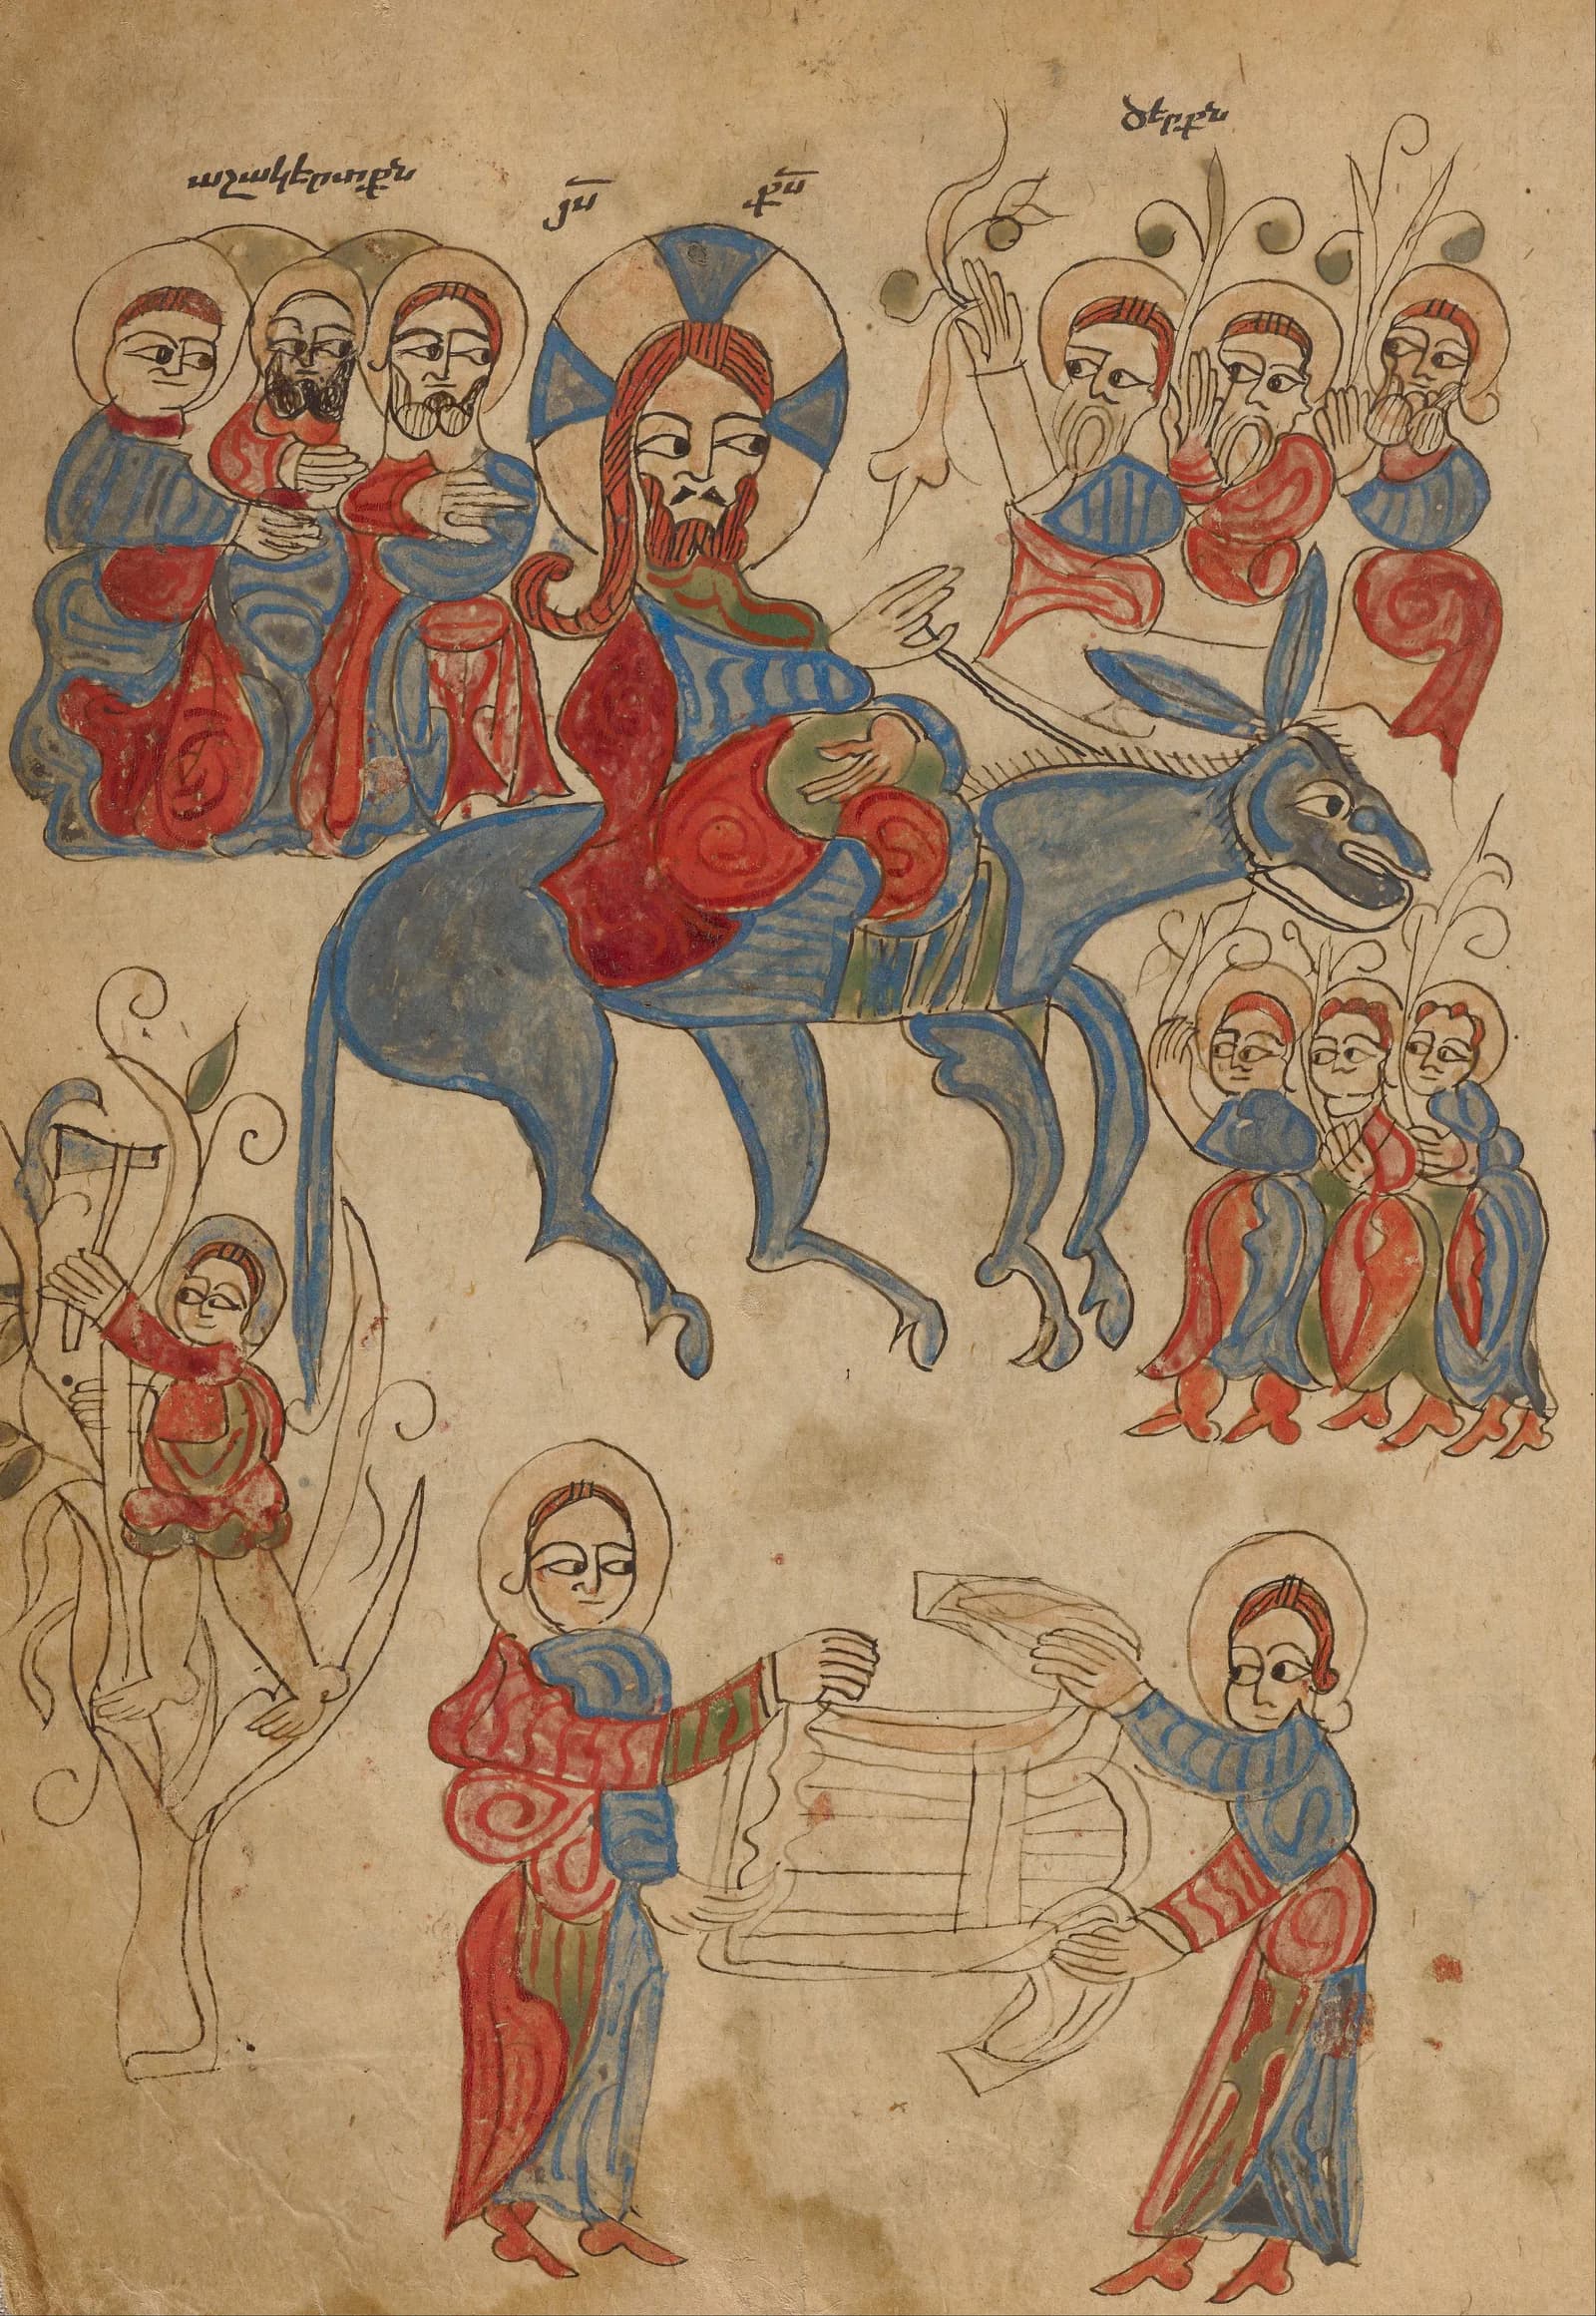 աշակէրտքն
յս̄ քս̄
ծէրքն